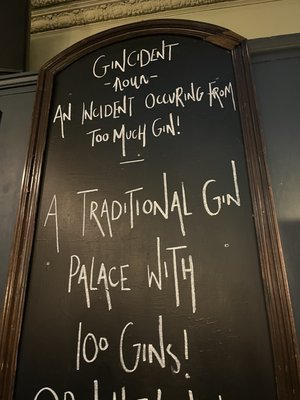 GINCIDENT
-NOUN-
AN INCIDENT OCCURING FROM
TOO MUCH GIN!
A TRADITIONAL GIN
PALACE WITH
100 GINS!